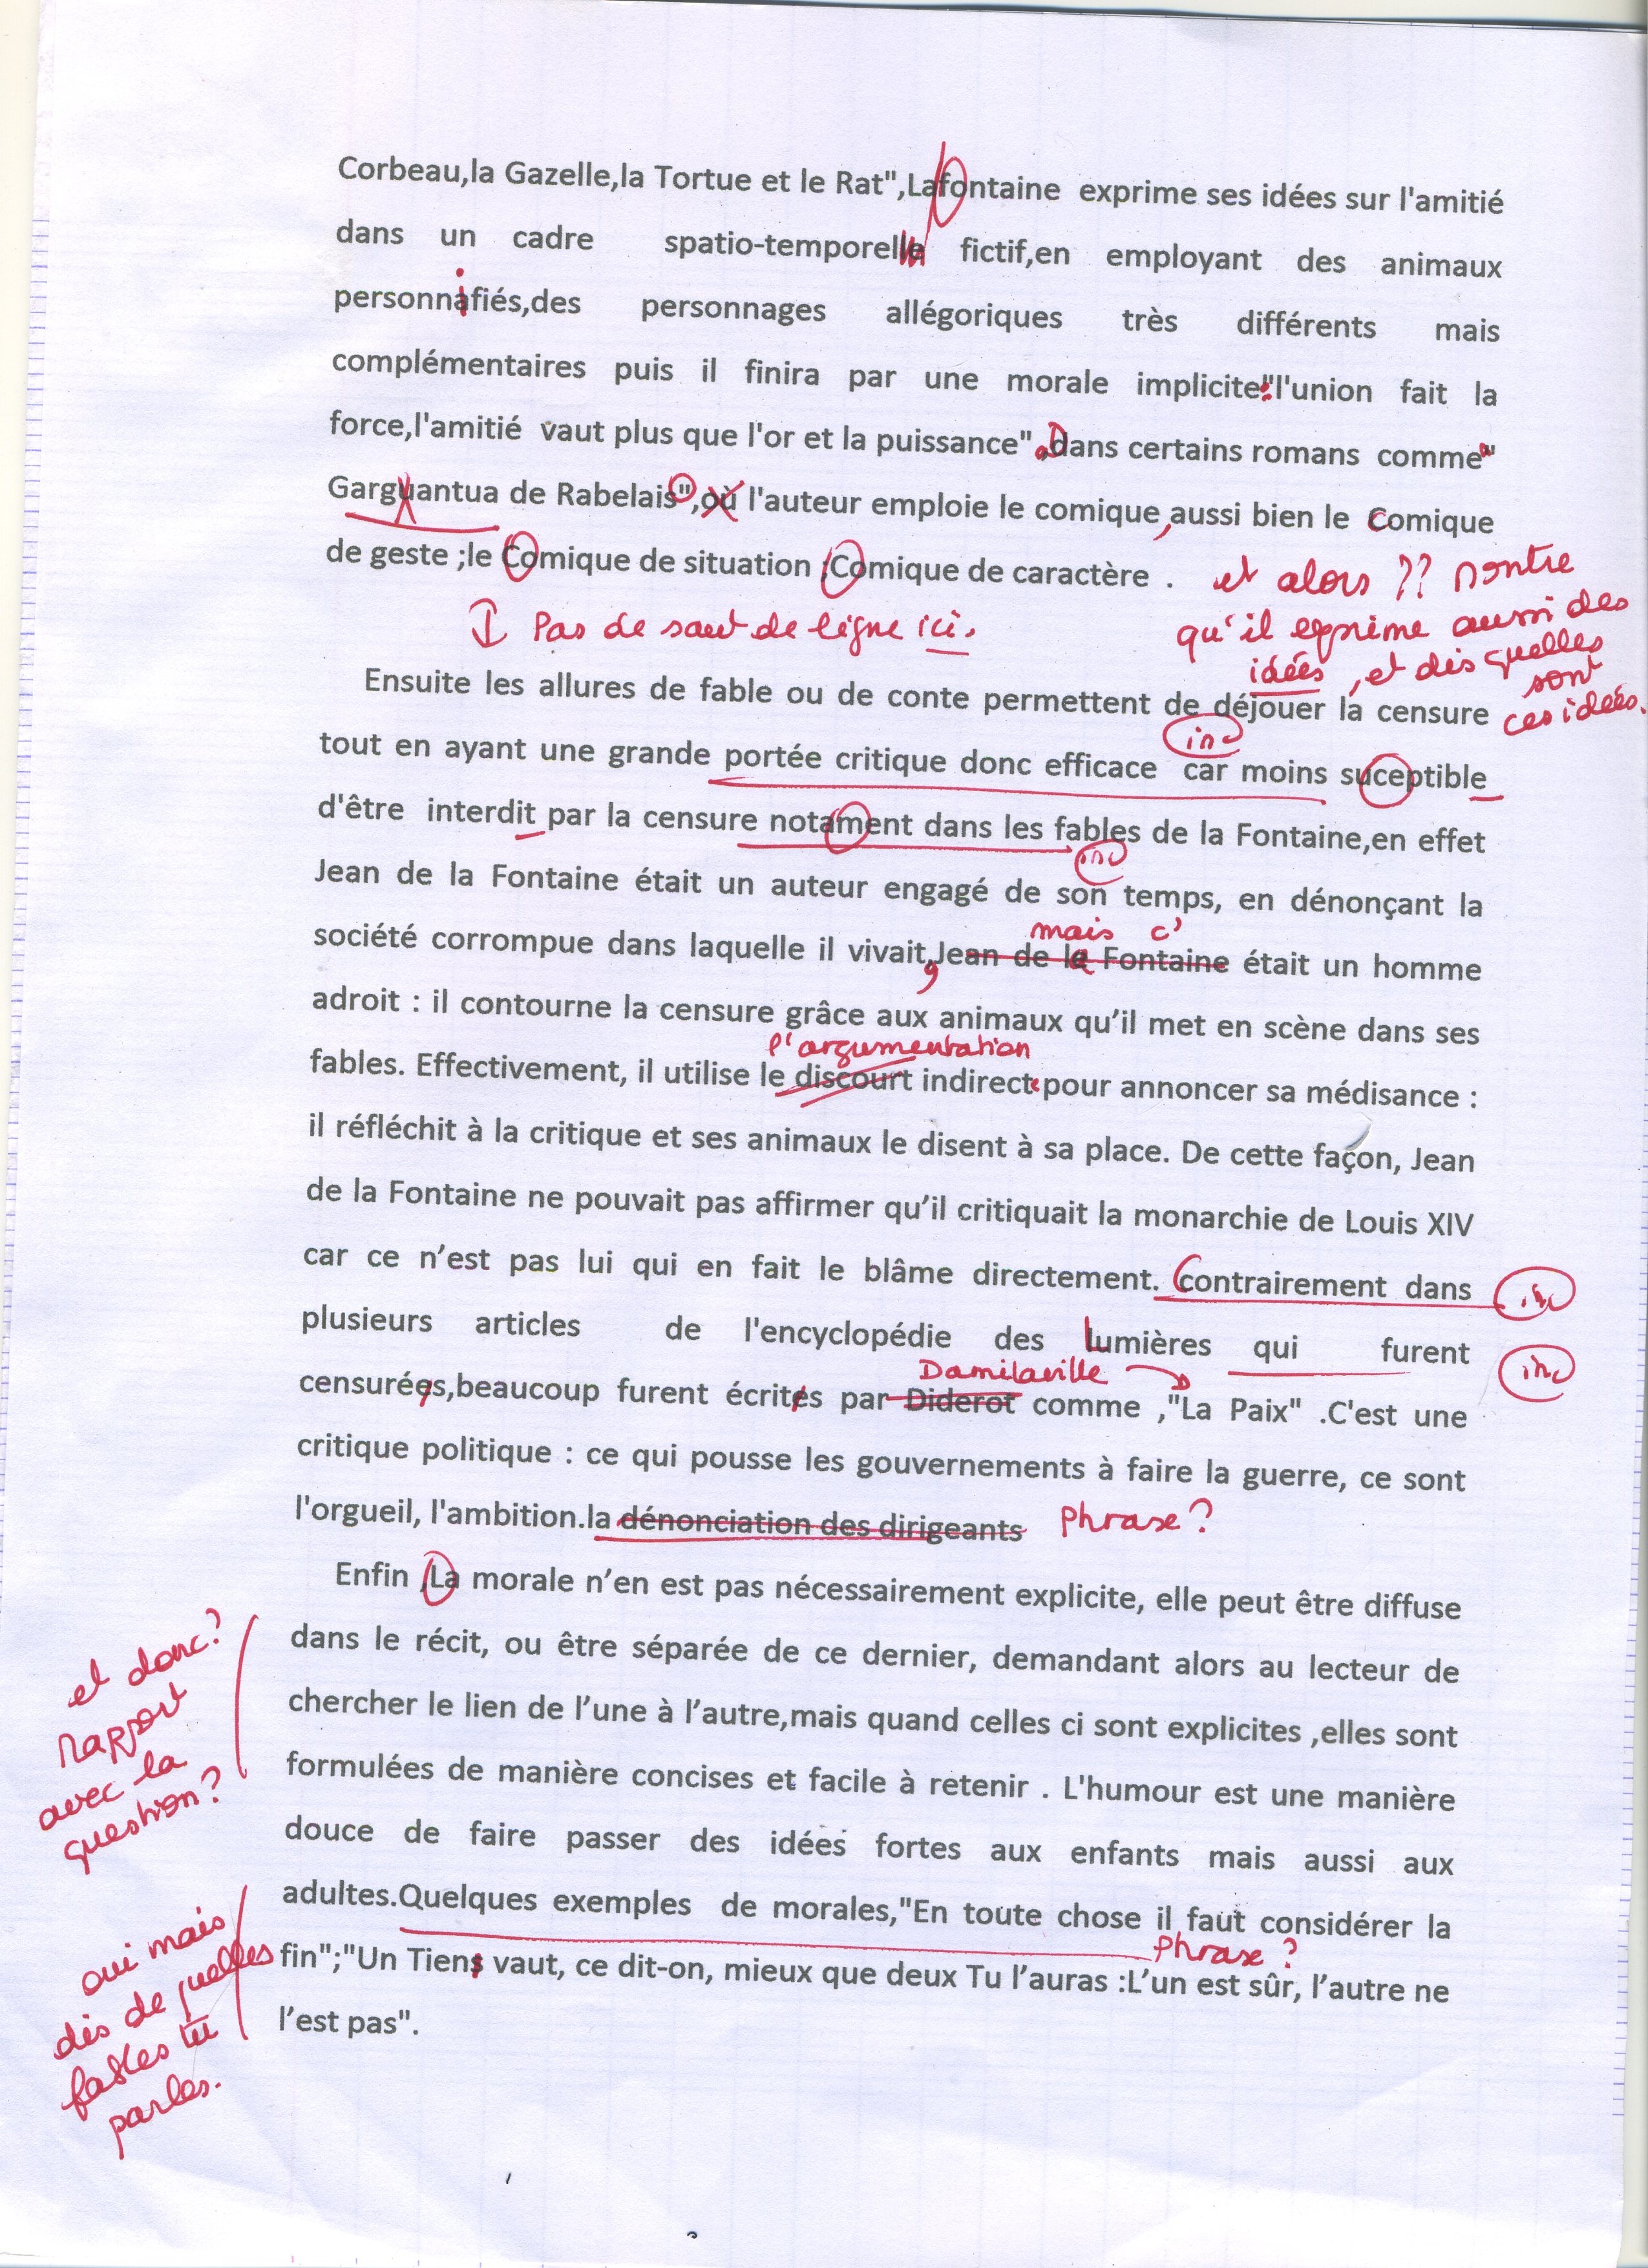 Corbeau,la Gazelle,la Tortue et le Rat",Lafontaine exprime ses idées sur l'amitié
dans un cadre spatio-temporelle fictif,en employant des animaux
personnifiés,des personnages allégoriques très différents mais
complémentaires puis il finira par une morale implicite:"l'union fait la
force,l'amitié vaut plus que l'or et la puissance",dans certains romans comme"
Garguantua de Rabelais",où l'auteur emploie le comique,aussi bien le Comique
de geste ;le Comique de situation ;Comique de caractère .
et alors ?? Montre
qu'il exprime aussi des
idées, et dis quelles
sont
ces idées.
Pas de saut de ligne ici.
Ensuite les allures de fable ou de conte permettent de déjouer la censure
inc
tout en ayant une grande portée critique donc efficace car moins suceptible
d'être interdit par la censure notament dans les fables de la Fontaine,en effet
inc
Jean de la Fontaine était un auteur engagé de son temps, en dénonçant la
mais c'
société corrompue dans laquelle il vivait,Jean de la Fontaine était un homme
adroit : il contourne la censure grâce aux animaux qu'il met en scène dans ses
l'argumentation
fables. Effectivement, il utilise le discourt indirecte pour annoncer sa médisance :
il réfléchit à la critique et ses animaux le disent à sa place. De cette façon, Jean
de la Fontaine ne pouvait pas affirmer qu'il critiquait la monarchie de Louis XIV
car ce n'est pas lui qui en fait le blâme directement. Contrairement dans inc
plusieurs articles de l'encyclopédie des Lumières qui furent inc
Damilaville
censurées,beaucoup furent écrites par Diderot comme ,"La Paix" .C'est une
critique politique : ce qui pousse les gouvernements à faire la guerre, ce sont
l'orgueil, l'ambition.la dénonciation des dirigeants Phrase?
Enfin ,La morale n'en est pas nécessairement explicite, elle peut être diffuse
dans le récit, ou être séparée de ce dernier, demandant alors au lecteur de
chercher le lien de l'une à l'autre,mais quand celles ci sont explicites ,elles sont
formulées de manière concises et facile à retenir . L'humour est une manière
douce de faire passer des idées fortes aux enfants mais aussi aux
adultes.Quelques exemples de morales,"En toute chose il faut considérer la
Phrase ?
fin";"Un Tiens vaut, ce dit-on, mieux que deux Tu l'auras :L'un est sûr, l'autre ne
l'est pas".
et donc?
Rapport
avec la
question?
oui mais
dis de quelles
fables tu
parles.